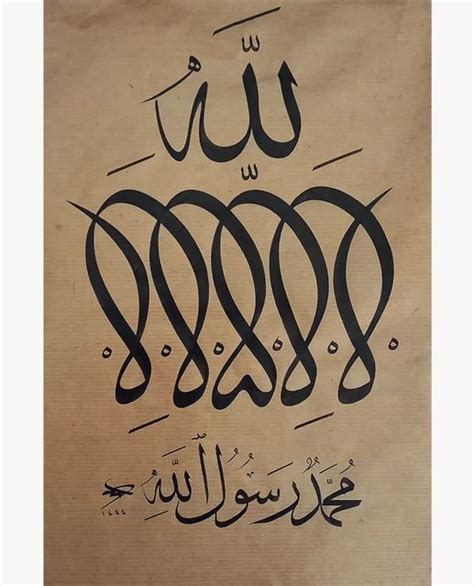 لا إله إلا
الله
مُحَمَّدٌ رَسُولُ ٱللَّهِ
١٤٤٤